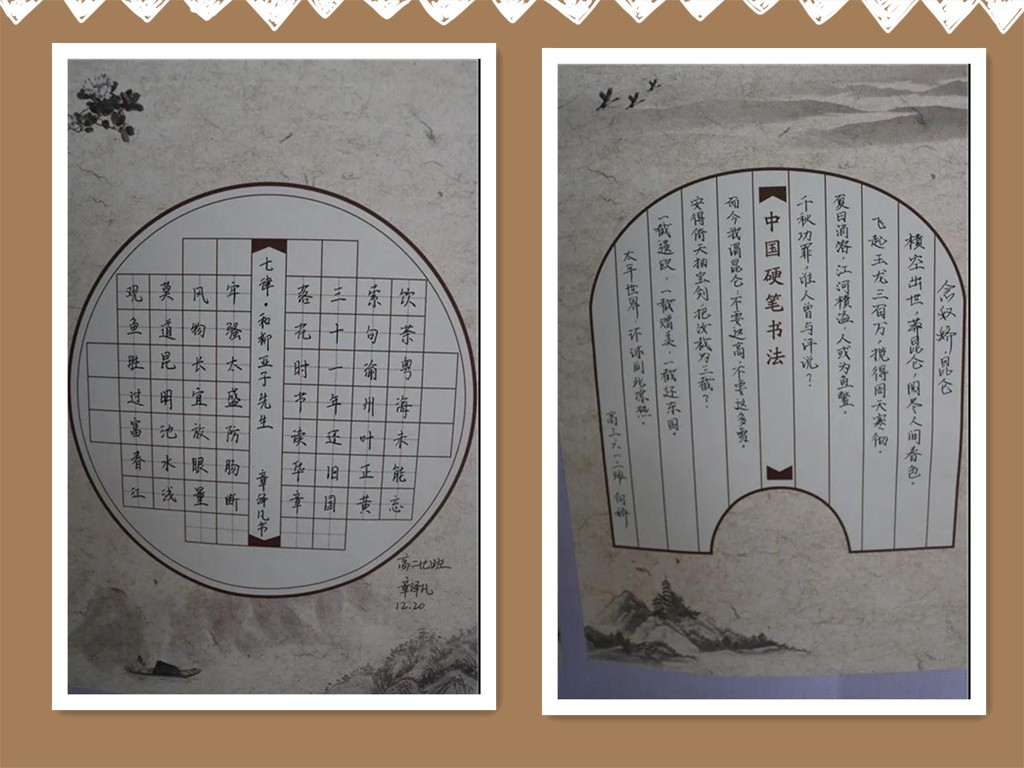 饮茶粤海未能忘
索句渝州叶正黄
三十一年还旧国
落花时节读华章
七律·和柳亚子先生
章泽凡书
牢骚太盛防肠断
风物长宜放眼量
莫道昆明池水浅
观鱼胜过富春江
高二
章泽凡
12.20
念奴娇·昆仑
横空出世,莽昆仑,阅尽人间春色。
飞起玉龙三百万,搅得周天寒彻。
夏日消溶,江河横溢,人或为鱼鳖。
千秋功罪,谁人曾与评说?
中国硬笔书法
而今我谓昆仑:不要这高,不要这多雪。
安得倚天抽宝剑,把汝裁为三截?
一截遗欧,一截赠美,一截还东国。
太平世界,环球同此凉热。
高二六一二班 何娇